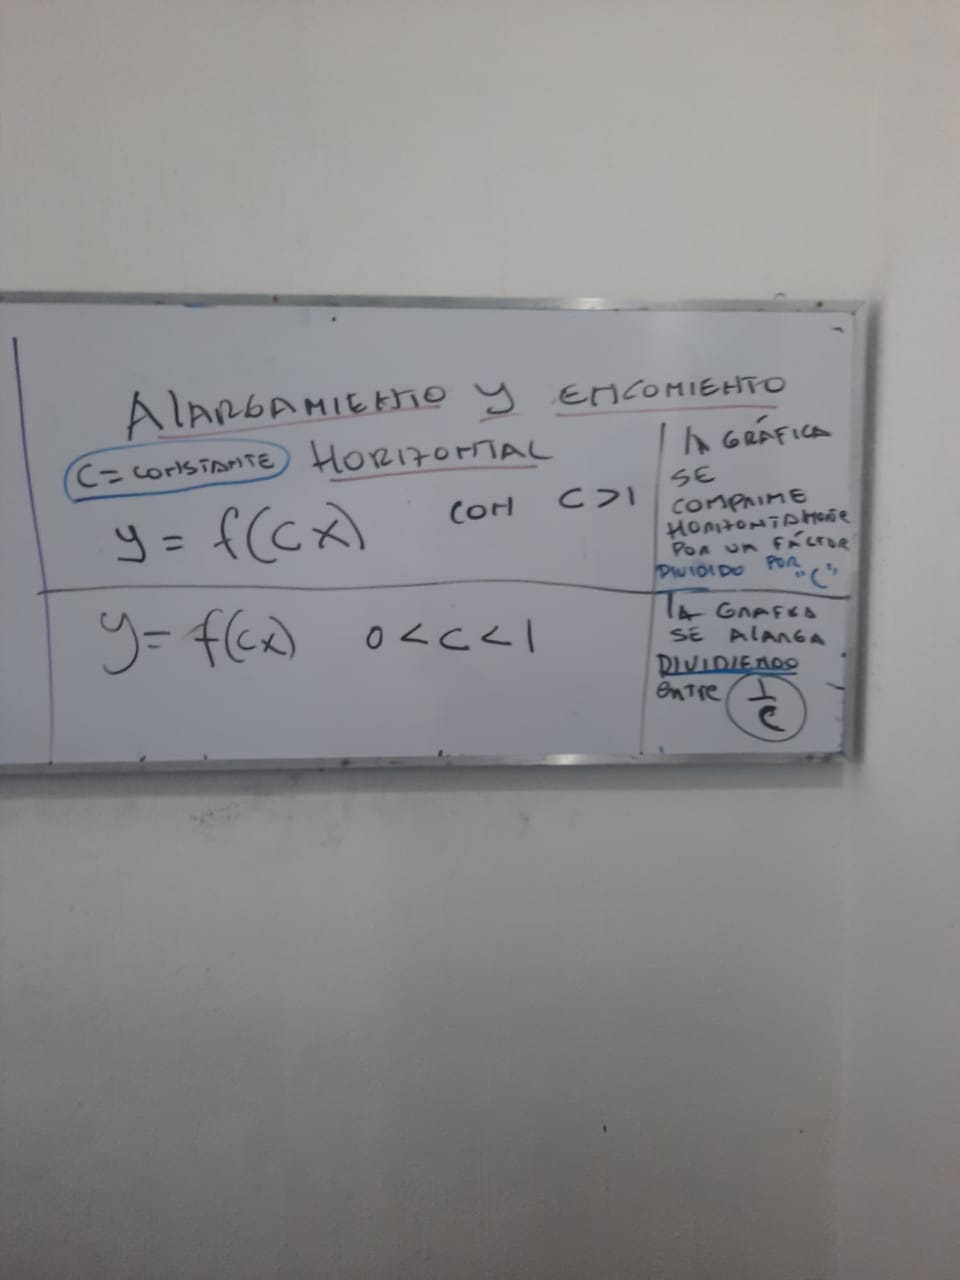 ALARGAMIENTO Y ENCOMIENTO
C = CONSTANTE HORIZONTAL
y = f(cx) CON C > 1
LA GRÁFICA
SE
COMPRIME
HORIZONTAMENTE
POR UN FÁCTOR
DIVIDIDO POR
"C"
y = f(cx) 0 < c < 1
LA GRAFICA
SE ALARGA
DIVIDIENDO
entre 1/c